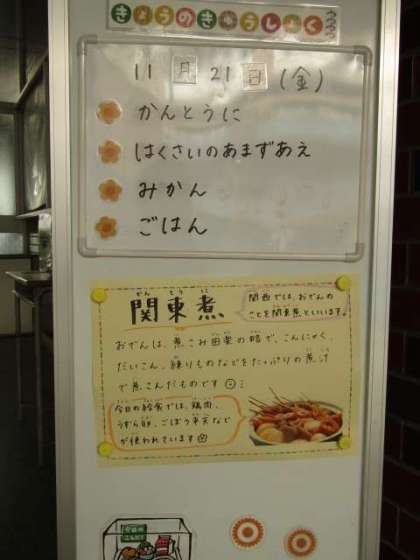 きょうのきゅうしょく
11月21日(金)
かんとうに
はくさいのあまずあえ
みかん
ごはん
関東煮
関西では、おでんの
ことを関東煮といいます。
おでんは、煮こみ田楽の略で、こんにゃく、
だいこん、練りものなどをたっぷりの煮汁
で煮こんだものです
今日の給食では、鶏肉、
うずら卵、ごぼう平天など
が使われています